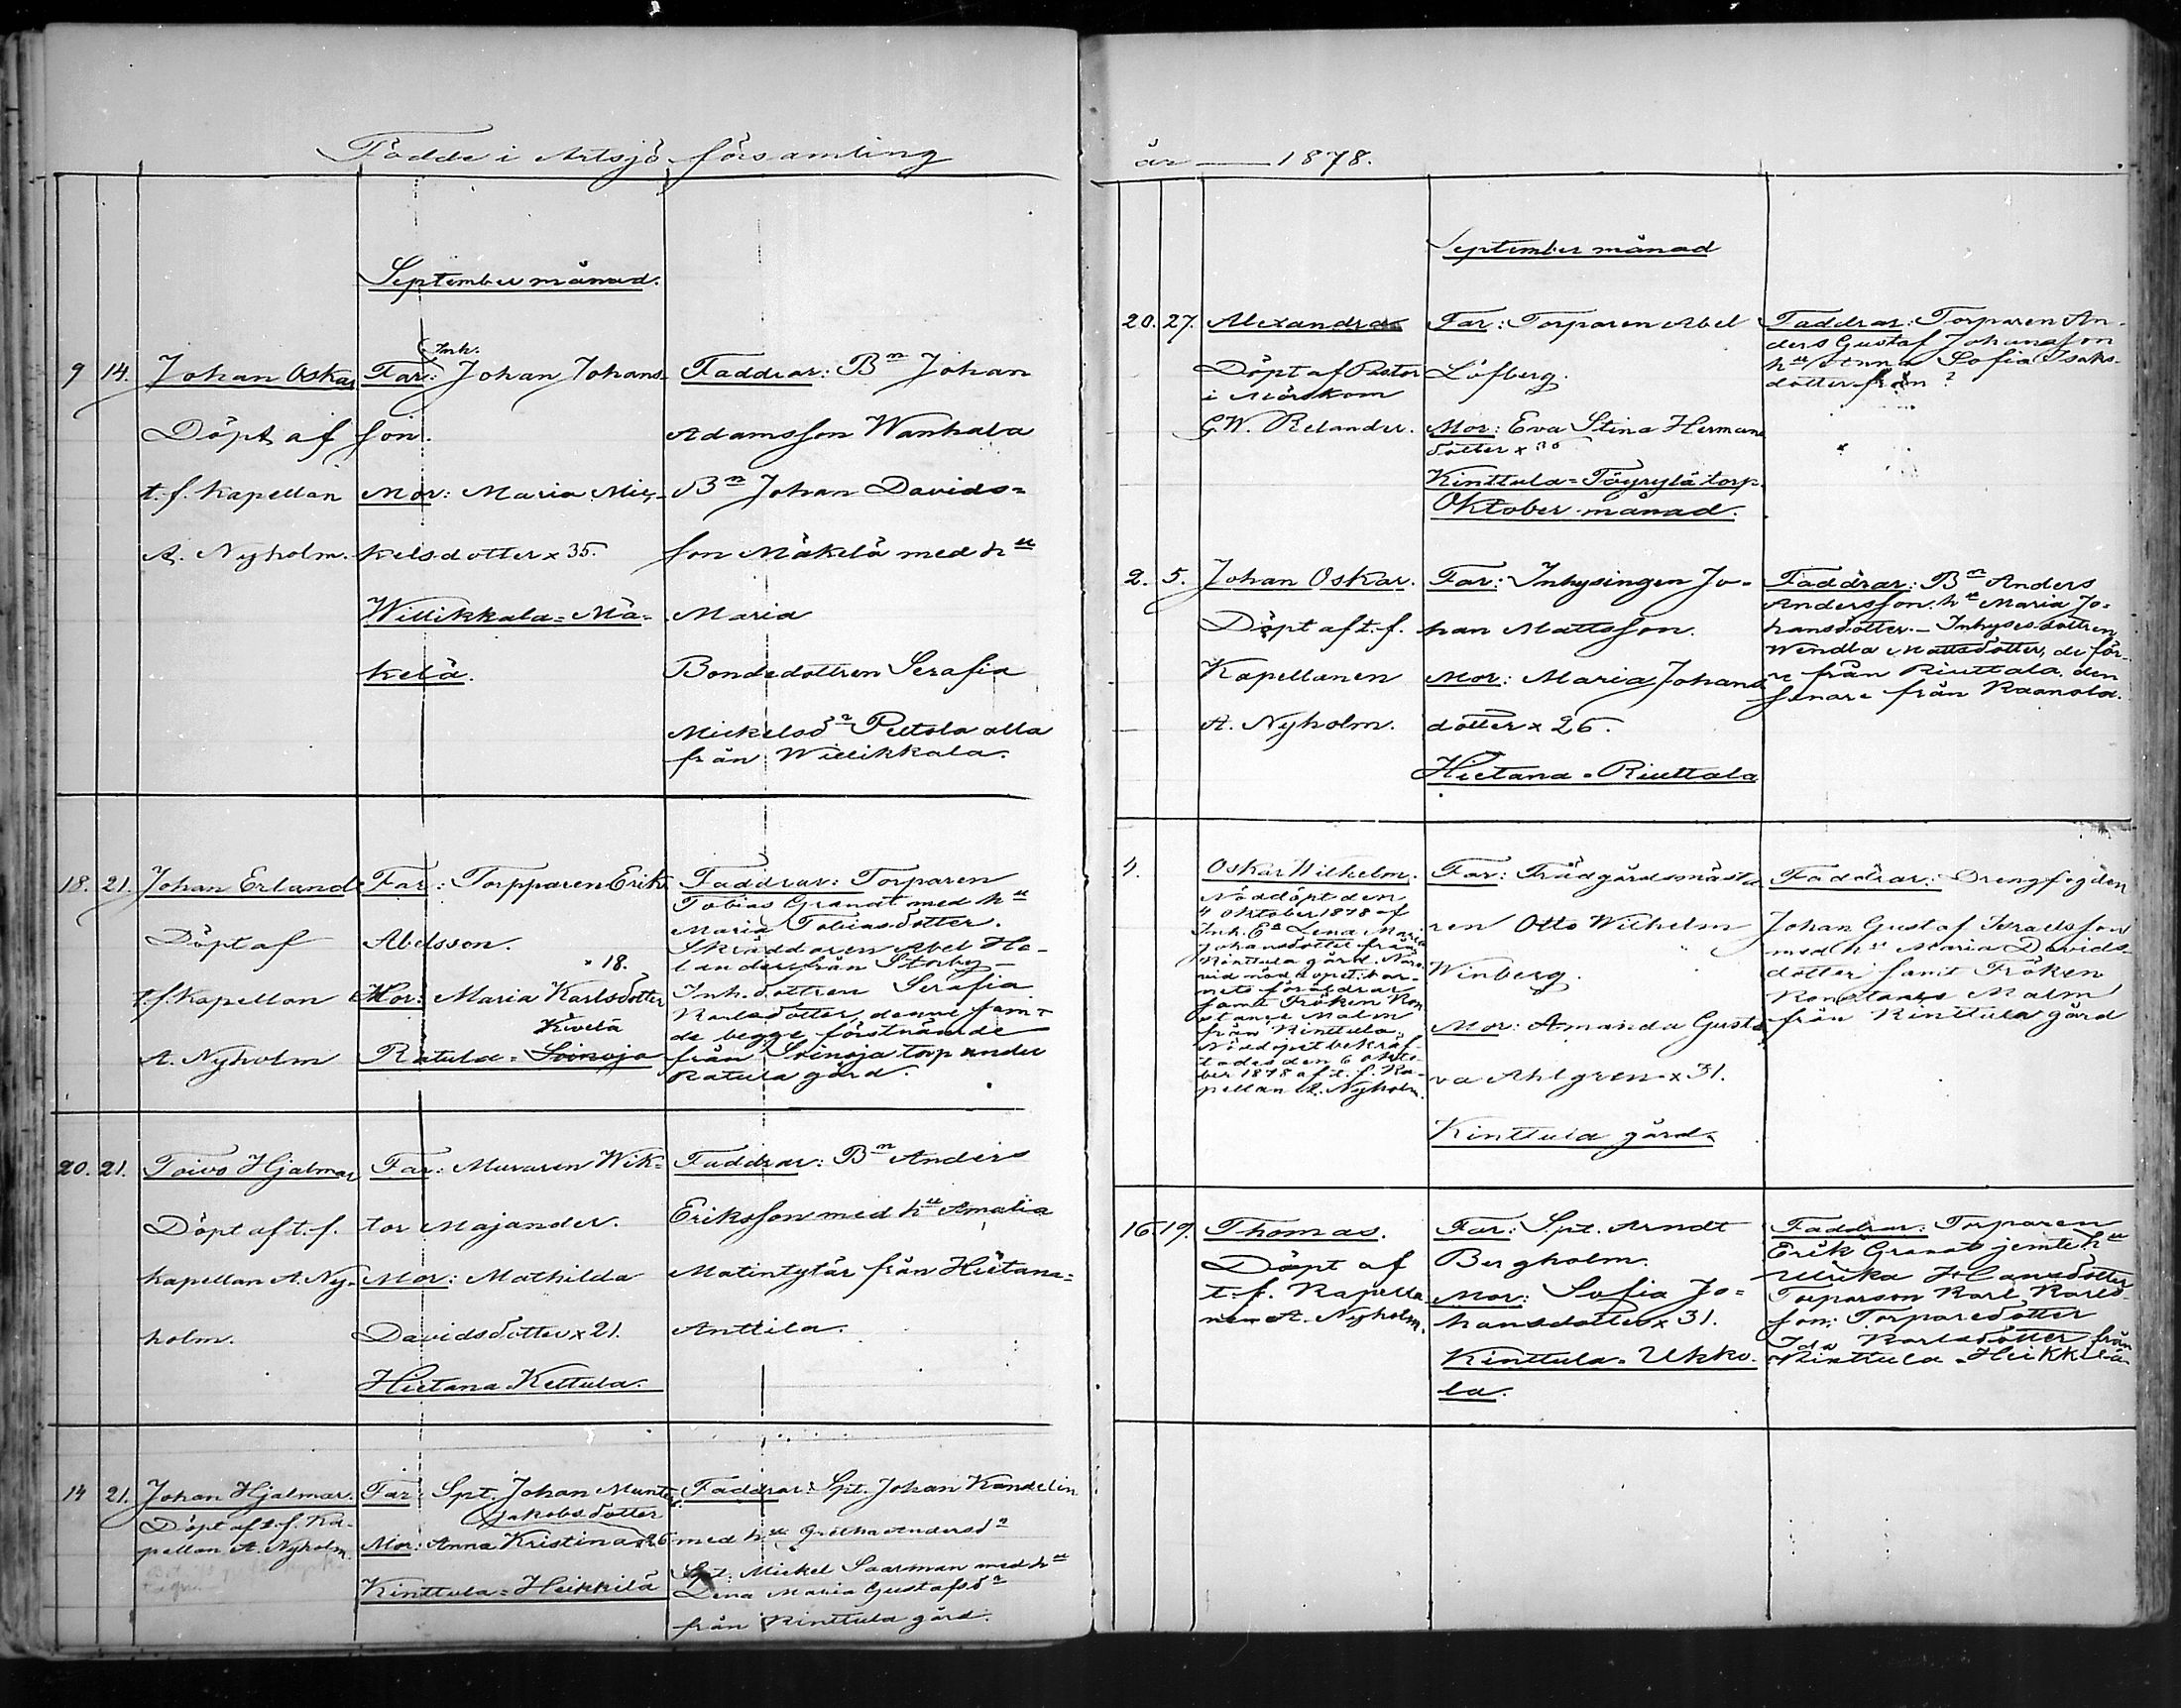 Födde i Artsjö församling
September månad.
9 14. Johan Oskar
Döpt af
t. f. Kapellan
A. Nyholm.
Inh.
Far: Johan Johans-
son.
Mor: Maria Mic-
kelsdotter x 35.
Willikkala = Mä-
kelä.
Faddrar: Bn Johan
Adamsson Wanhala
Bn Johan Davids=
son Mäkelä med hu
Maria
Bondedottren Serafia
Mickelsdr Peltola alla
från Willikkala.
18. 21. Johan Erland
Döpt af
t. f. Kapellan
A. Nyholm
Far: Torpparen Erik
Abelsson.
x 18.
Mor: Maria Karlsdotter
Kivelä
Ratula = Soinoja
Faddrar: Torparen
Tobias Granat med hu
Maria Tobiasdotter.
Skräddaren Abel He-
lander från Storby-
Inh. dottren Serafia
Karlsdotter, denne jem-
de begge förstnämde
från Soinoja torp under
Ratula gård.
20. 21. Toivo Hjalmar
Döpt af t. f.
kapellan A. Ny-
holm.
Far: Muraren Wik=
tor Majander.
Mor: Mathilda
Davidsdotter x 21.
Hietana Kettula.
Faddrar: Bn Anders
Eriksson med hu Amalia
Matintytär från Hietana=
Anttila.
14 21. Johan Hjalmar.
Döpt af t. f. Ka-
pellan A. Nyholm.
Far: Spt. Johan Munter.
Jakobsdotter
Mor: Anna Kristina x 26
Kinttula = Heikkilä
Faddrar: Spt. Johan Kandelin
med hu Gretha Andersdr
Spt: Mickel Saarman med hu
Lena Maria Gustafsdr
från Kinttula gård.
år 1878.
September månad
20. 27. Alexandra
Döpt af Pastor
i Mörskom
G. W. Relander.
Far: Torparen Abel
Löfberg.
Mor: Eva Stina Hermans
dotter x 30
Kinttula = Töyrylä torp.
Faddrar: Torparen An-
ders Gustaf Johansson
hu Anna Sofia Isaks-
dotter från ?
Oktober månad.
2. 5. Johan Oskar.
Döpt af t. f.
Kapellanen
A. Nyholm.
Far: Inhysingen Jo-
han Mattsson.
Mor: Maria Johans
dotter x 26.
Hietana = Riuttala
Faddrar: Bn Anders
Andersson, hu Maria Jo-
hansdotter. - Inhysesdottren
Wendla Mattsdotter, de för-
re från Riuttala, den
senare från Raanola.
4. Oskar Wilhelm.
Nöddöpt den
4 Oktober 1878 af
Inh. Ea Lena Maria
Johansdotter från
Kinttula gård. Närv.
vid nöddopet: bar-
nets föräldrar
samt Fröken Kon
stance Malm
från Kinttula.
Nöddopet bekräf-
tades den 6 Okto-
ber 1878 af t. f. Ka-
pellan A. Nyholm.
Far: Trädgårdsmästa
ren Otto Wilhelm
Winberg.
Mor: Amanda Gusta
va Ahlgren x 31.
Kinttula gård.
Faddrar: Drengfogden
Johan Gustaf Israelsson
med hu Maria Davids-
dotter samt Fröken
Konstance Malm
från Kinttula gård
16 19. Thomas.
Döpt af
t. f. Kapella-
nen A. Nyholm.
Far: Spt. Arndt
Bergholm.
Mor: Sofia Jo-
hansdotter x 31.
Kinttula = Ukko-
la.
Faddrar: Torparen
Erik Granat jemte hu
Ulrika Hansdotter
Torparson Karl Karls-
son; Torparedotter
Ida Karlsdotter från
Kinttula = Heikkilä